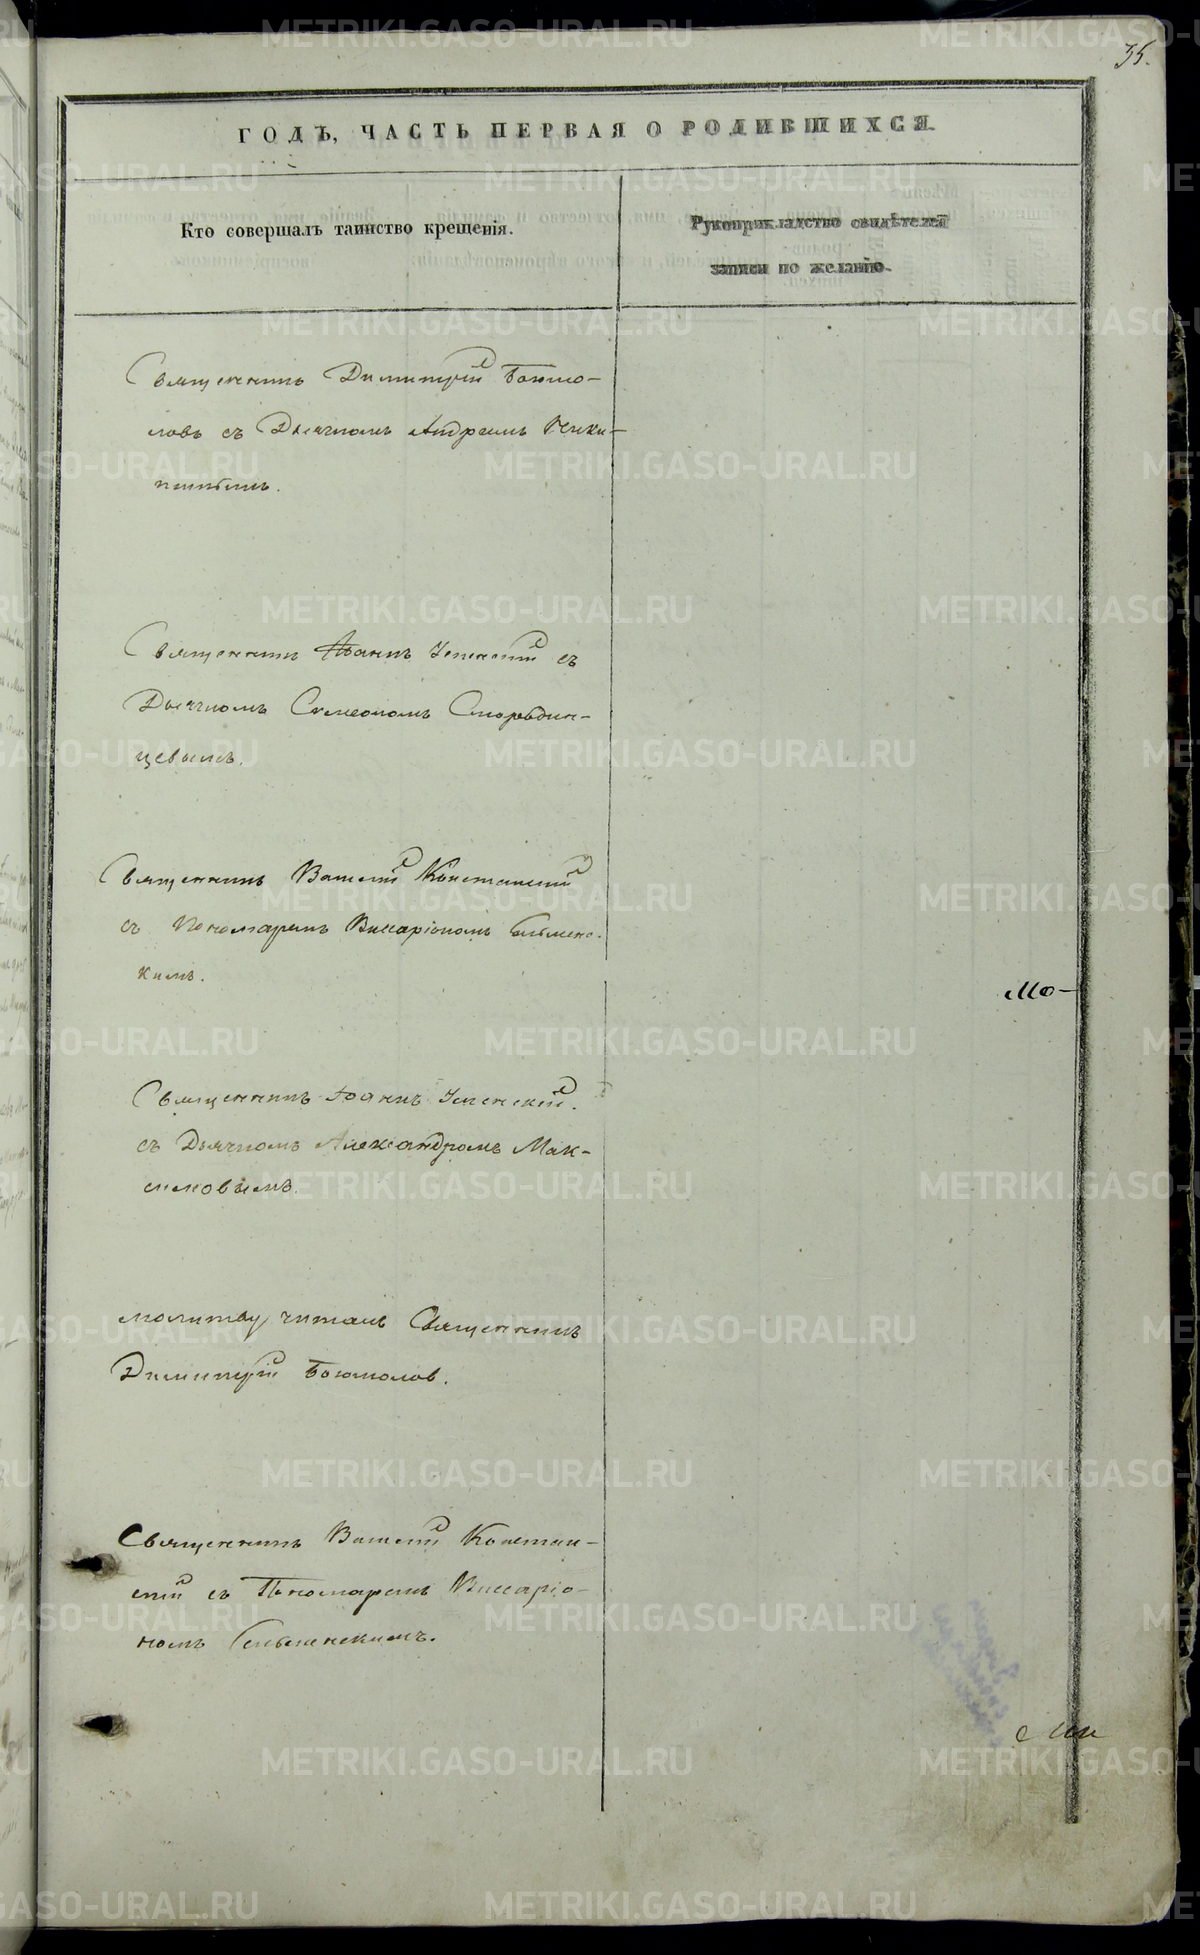 35.
ГОДЪ, ЧАСТЬ ПЕРВАЯ О РОДИВШИХСЯ.
Кто совершалъ таинство крещенія.
Рукоприкладство свидѣтелей
записи по желанію.
Священникъ Димитрій Богомо-
ловъ съ Дьячкомъ Андреемъ Ники-
тинымъ.
Священникъ Іоаннъ Успенскій съ
Дьячкомъ Симеономъ Спородин-
цевымъ.
Священникъ Василій Констанскій
съ Пономаремъ Виссаріономъ
кимъ.
Мо-
Священникъ Іоаннъ Успенскій.
съ Дьячкомъ Александромъ Мак-
симовымъ.
молитву читалъ Священникъ
Димитрій Богомолов.
Священникъ Василій Констан-
скій съ Пономаремъ Виссаріо-
номъ
METRIKI.GASO-URAL.RU